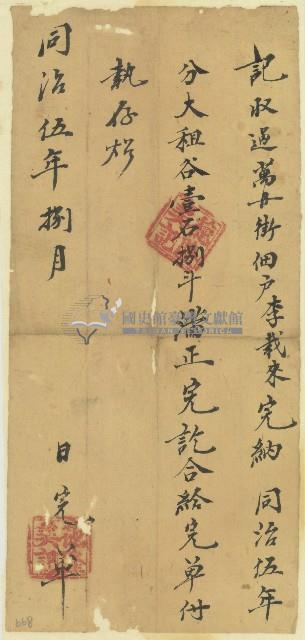 記收過萬丹街佃户李栽來完納同治伍年
分大租谷壹石捌斗滿正完訖合給完单付
執存炤
同治伍年捌月
日完单
國史館臺灣文獻館
TAIWAN HISTORICA
668